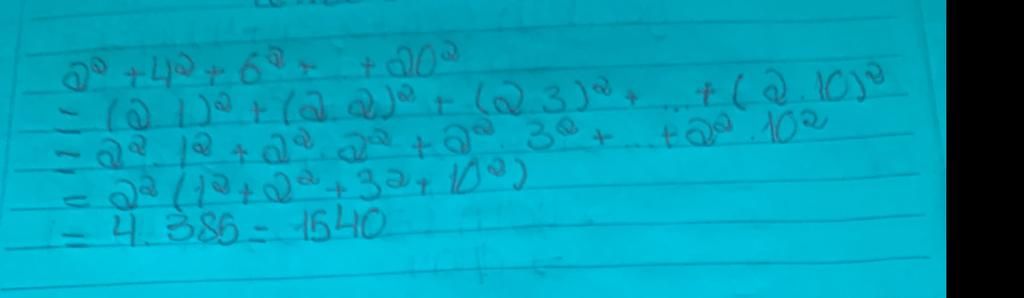 2² + 4² + 6² + .. + 20²
= (2.1)² + (2.2)² + (2.3)² + ... + (2.10)²
= 2².1² + 2².2² + 2².3² + ... + 2².10²
= 2² (1² + 2² + 3² + 10²)
= 4.385 = 1540